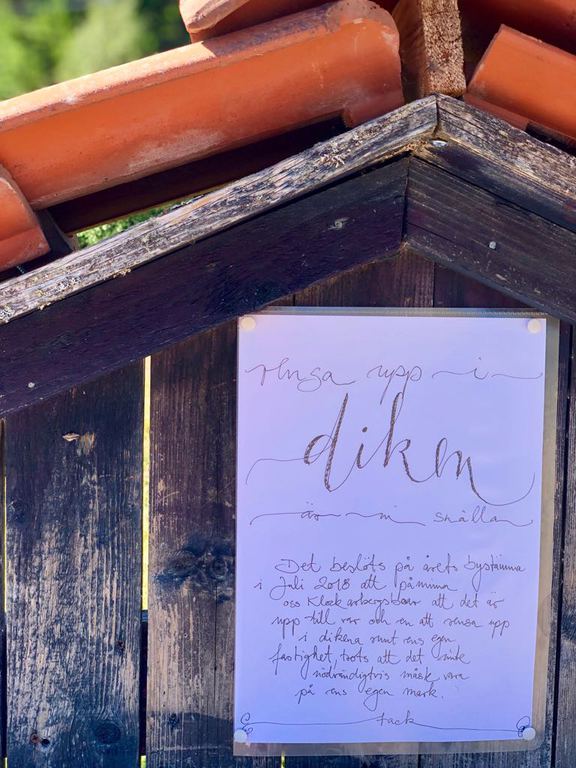 rensa upp i
diken
är ni snälla
Det beslöts på årets bystämma
i Juli 2018 att påminna
oss Klockarbergsbor att det är
upp till var och en att rensa upp
i dikena runt ens egen
fastighet, trots att det inte
nödvändigtvis måste vara
på ens egen mark.
tack